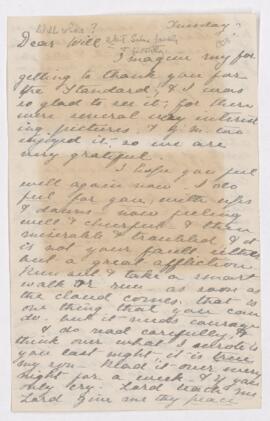 Tuesday.
Dear Will
I imagine my for
getting to thank you for
the Standard, & I was
so glad to see it; for there
were several very interest
ing pictures, &
enjoyed it; so we are
very grateful.
I hope you feel
well again now. I do
feel for you, with ups
& downs - now feeling
well & cheerful & then
miserable & troubled & it
is not your fault either
but a great affliction.
Run out & take a smart
walk or run as soon as
the cloud comes. that is
one thing that you can
do. but it needs courage
& do read carefully, &
think over what I wrote to
you last night. it is true
my son. Read it over every
night for a week - & if you
only cry. Lord teach me
Lord give me thy peace